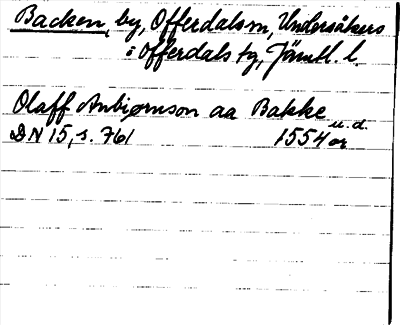 Backen, by, Offerdals sn, Undersåkers
: Offerdals tg, Jämtl. l.
Olaff Anbiørnson aa Bakke
DN 15, s. 761 1554 u.d. or